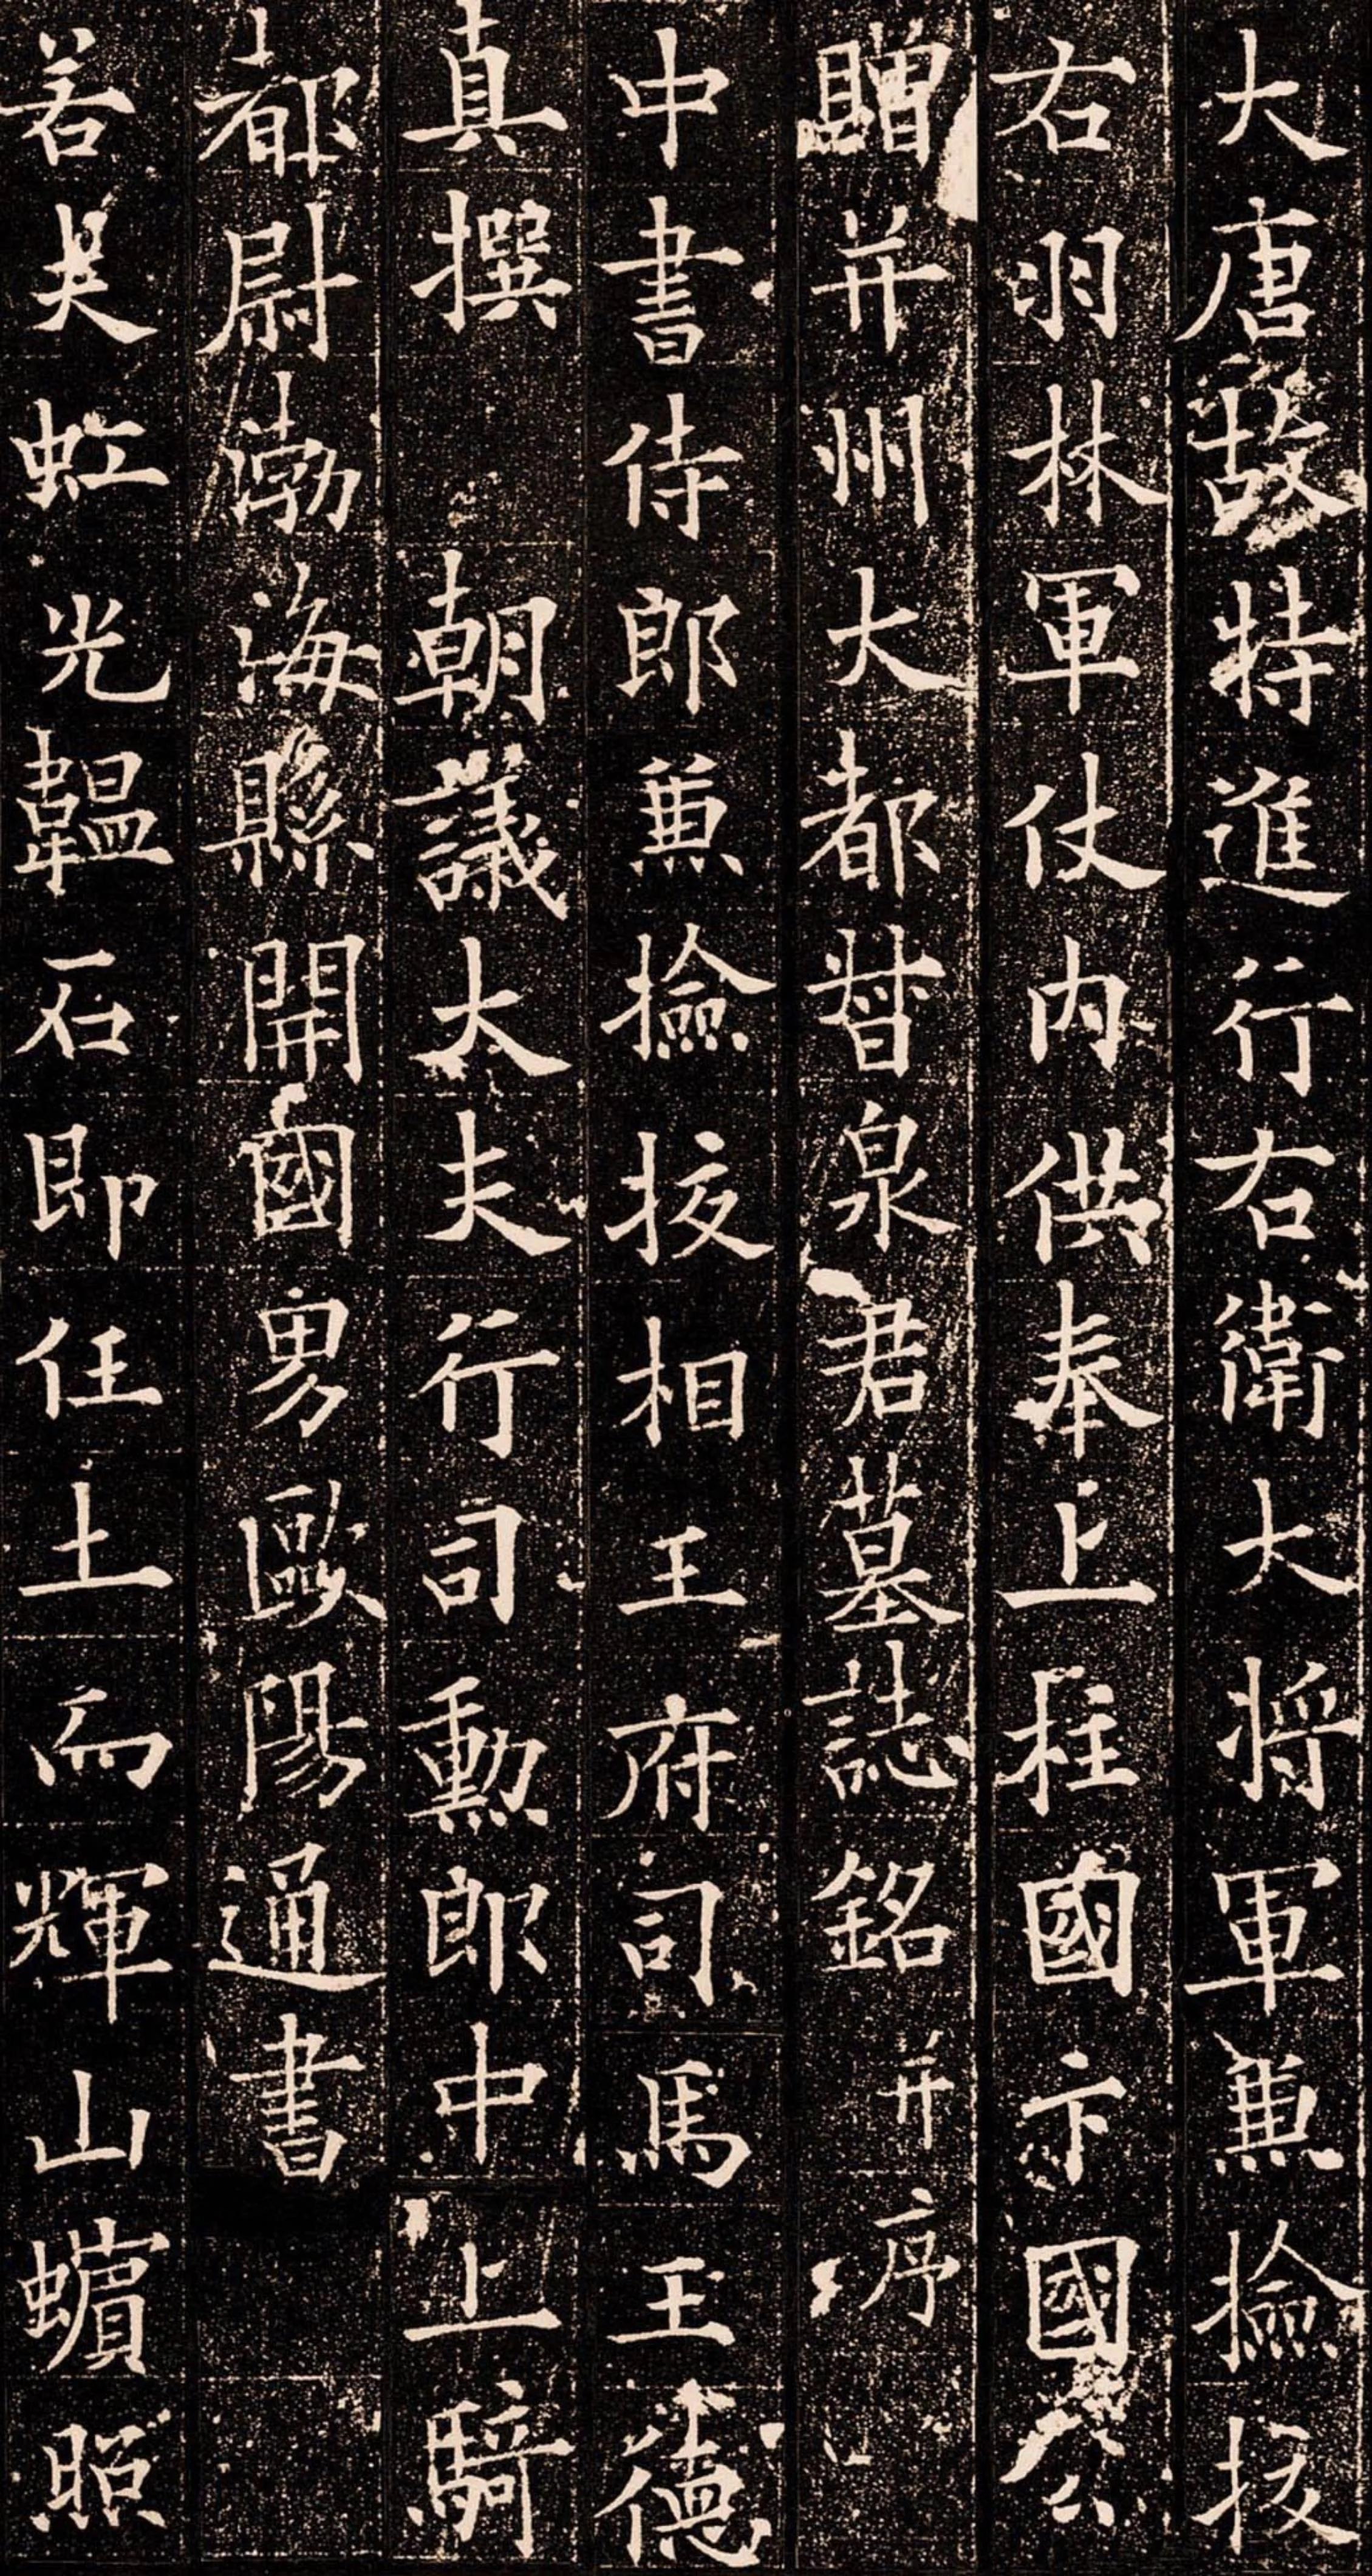 大唐故特進行右衛大將軍兼撿挍
右羽林軍仗內供奉上柱國卞國公
贈并州大都督泉君墓誌銘并序
中書侍郎兼撿挍相王府司馬王德
真撰 朝議大夫行司勳郎中上騎
都尉渤海縣開國男歐陽通書
若夫虹光韞石即任土而輝山蠙照